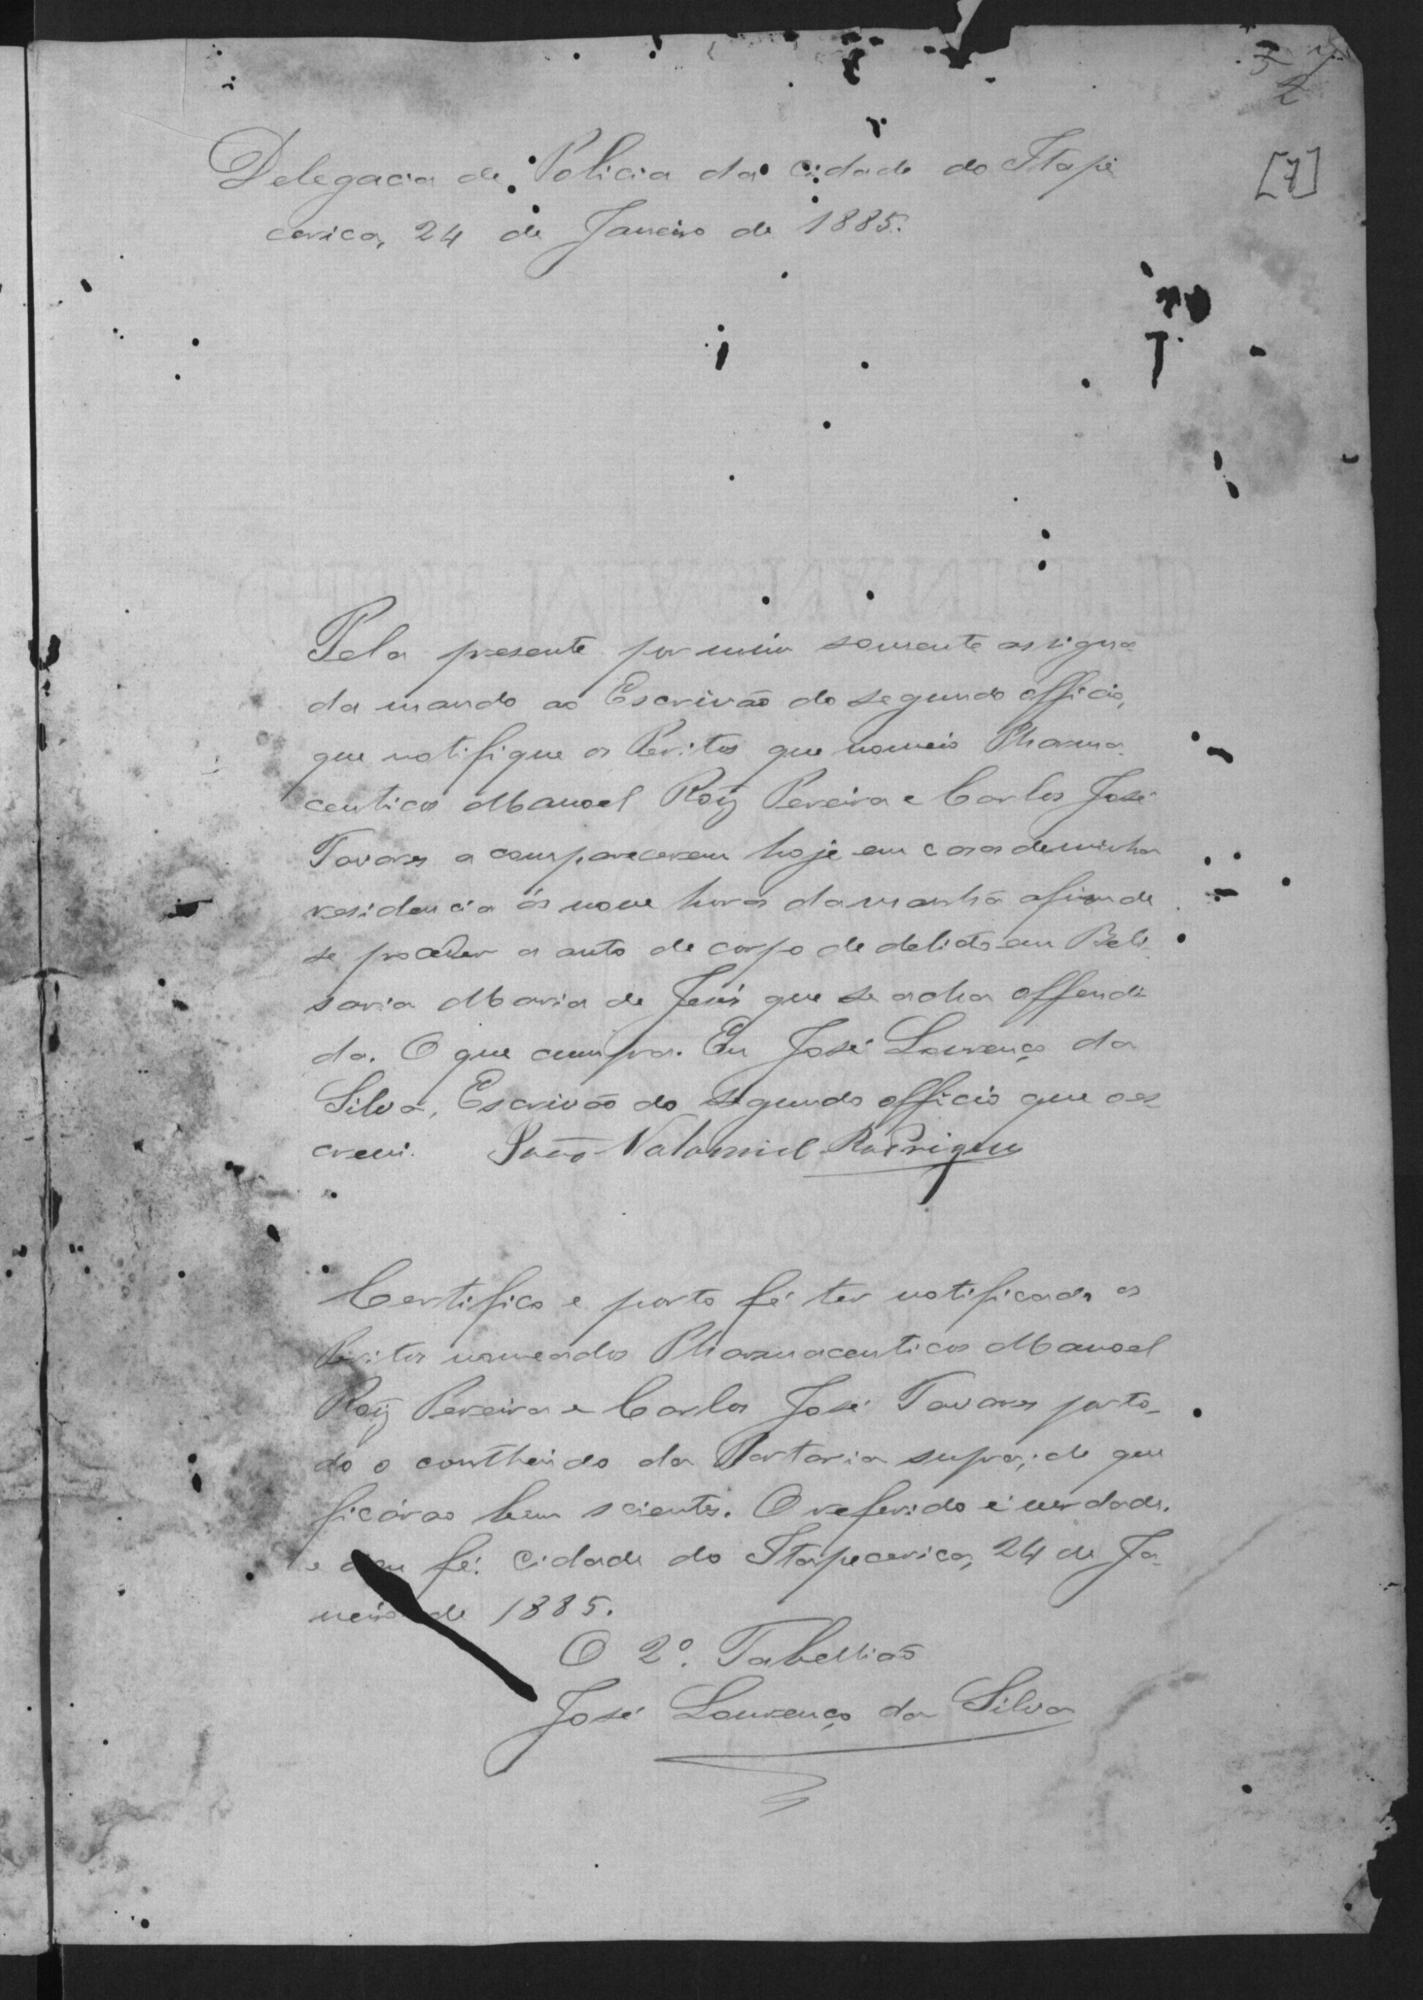 5
2
[7]
Delegacia de Policia da cidade do Itape
cerica, 24 de Janeiro de 1885.
Pela presente por mim somente assigna
da mando ao Escrivão do segundo officio,
que notifique os Peritos que nomeio Pharma
ceuticos Manoel Roiz Pereira e Carlos José
Tavares a comparecerem hoje em casa de minha
residencia ás nove horas da manhã afim de
se proceder a auto de corpo de delicto em Beli
saria Maria de Jesus que se acha offendi
da. O que cumpra. Eu José Lourenço da
Silva, Escrivão do segundo officio que o es
crevi. João Natamiel Rodrigues
Certifico e porto fé ter notificado os
Peritos nomeados Pharmaceuticos Manoel
Roiz Pereira e Carlos José Tavares por to_
do o contheudo da Portaria supra; de que
ficárao bem scientes. O referido é verdade.
e dou fé. Cidade do Itapecerica, 24 de Ja
neiro de 1885.
O 2º. Tabellião
José Lourenço da Silva